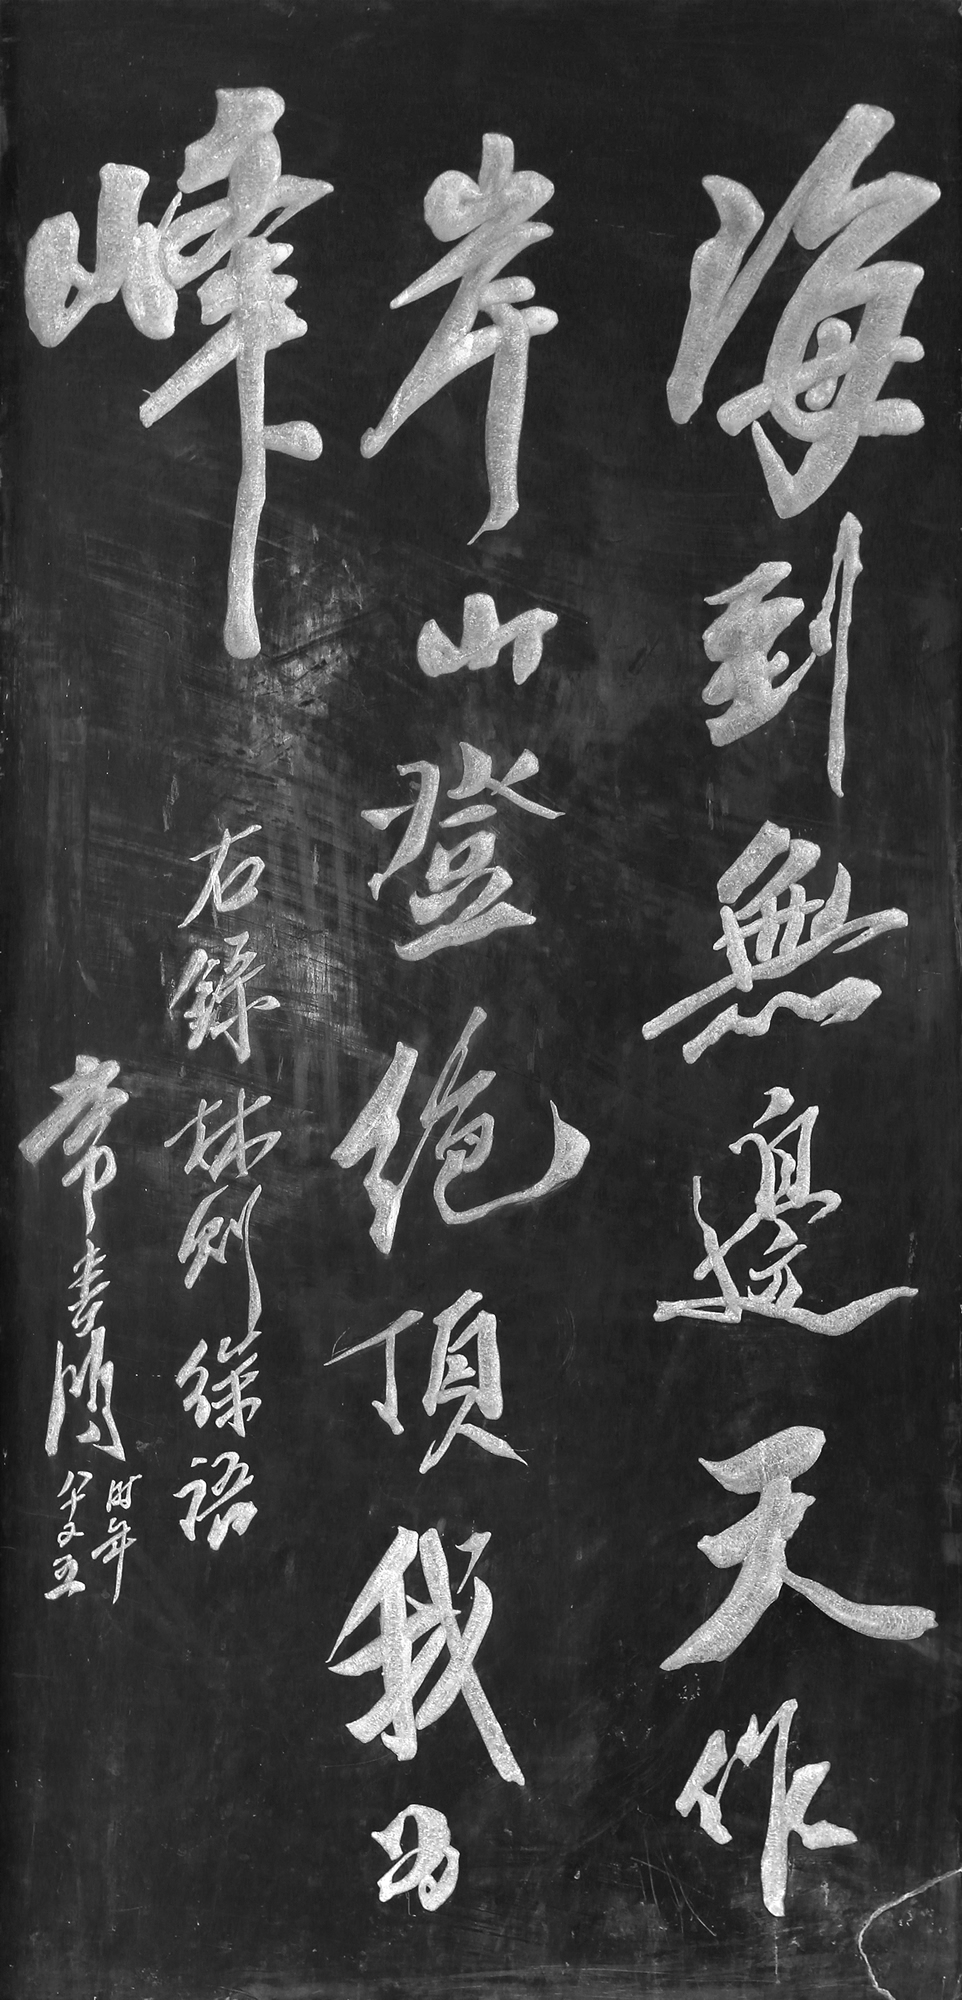 海到無邊天作
岸山登絕頂我为
峰
右錄林則徐語
常書鴻
时年
八十又五